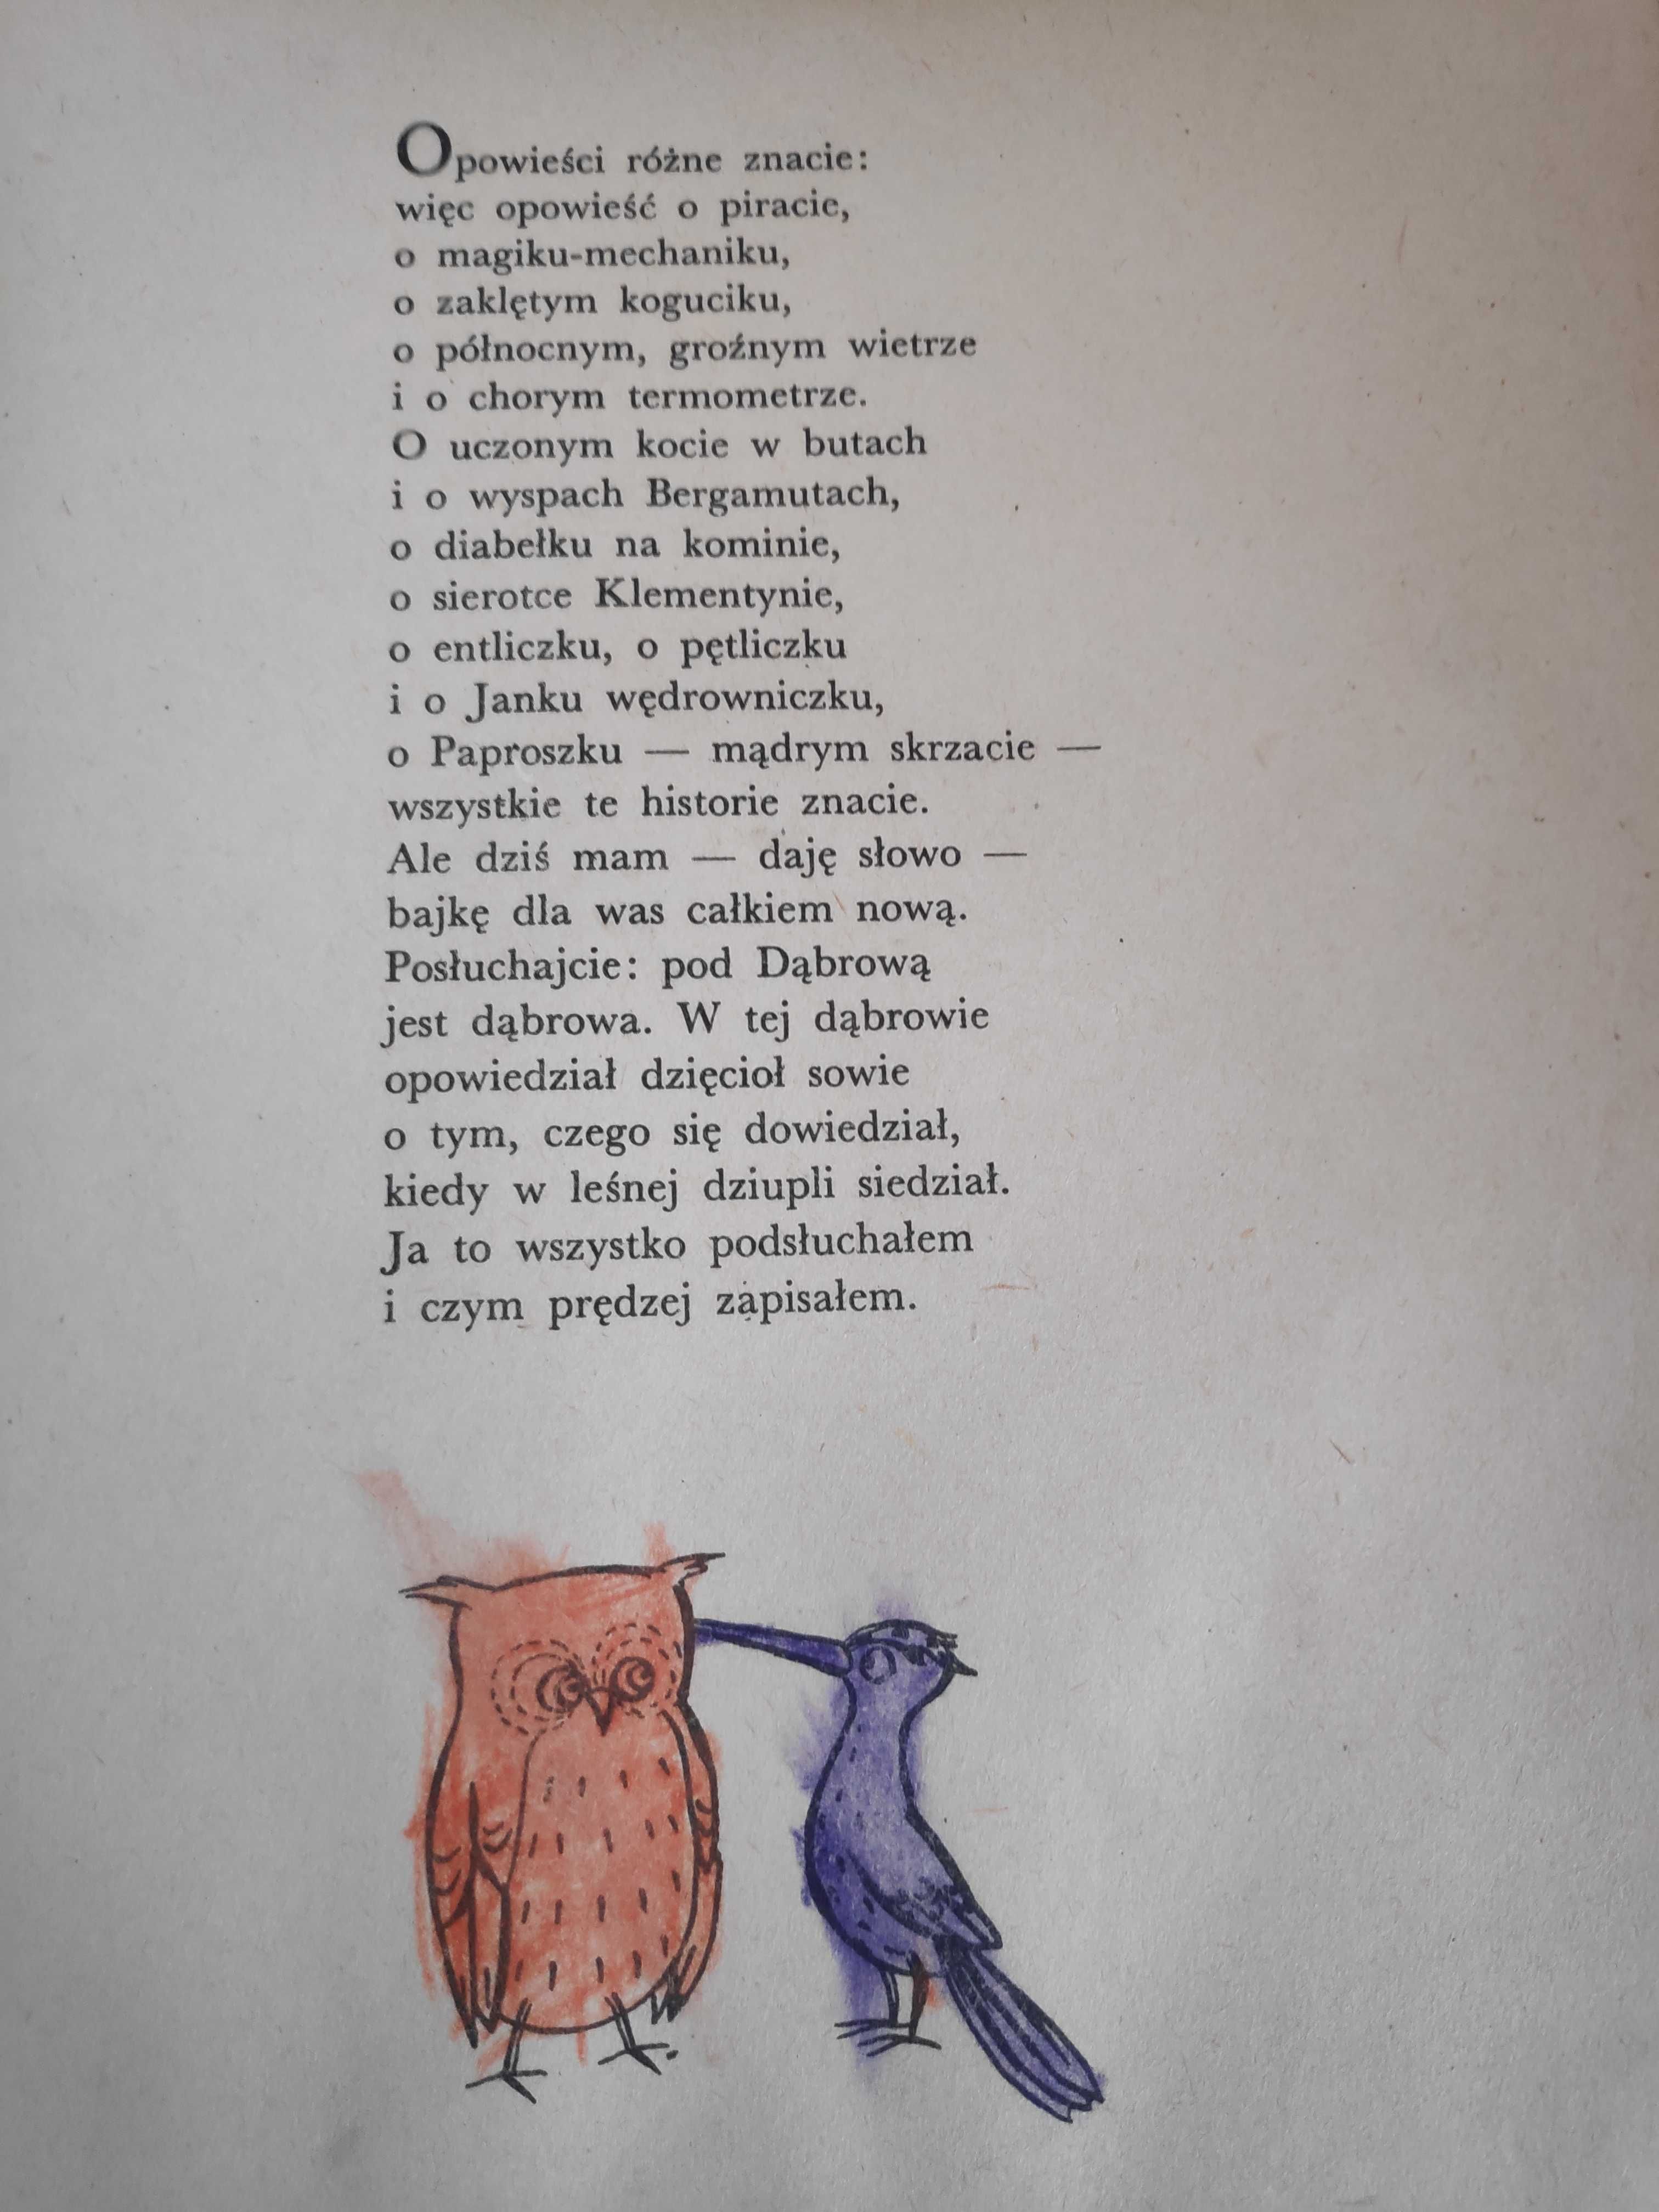 Opowieści różne znacie:
więc opowieść o piracie,
o magiku-mechaniku,
o zaklętym koguciku,
o północnym, groźnym wietrze
i o chorym termometrze.
O uczonym kocie w butach
i o wyspach Bergamutach,
o diabełku na kominie,
o sierotce Klementynie,
o entliczku, o pętliczku
i o Janku wędrowniczku,
o Paproszku — mądrym skrzacie —
wszystkie te historie znacie.
Ale dziś mam — daję słowo —
bajkę dla was całkiem nową.
Posłuchajcie: pod Dąbrową
jest dąbrowa. W tej dąbrowie
opowiedział dzięcioł sowie
o tym, czego się dowiedział,
kiedy w leśnej dziupli siedział.
Ja to wszystko podsłuchałem
i czym prędzej zapisałem.